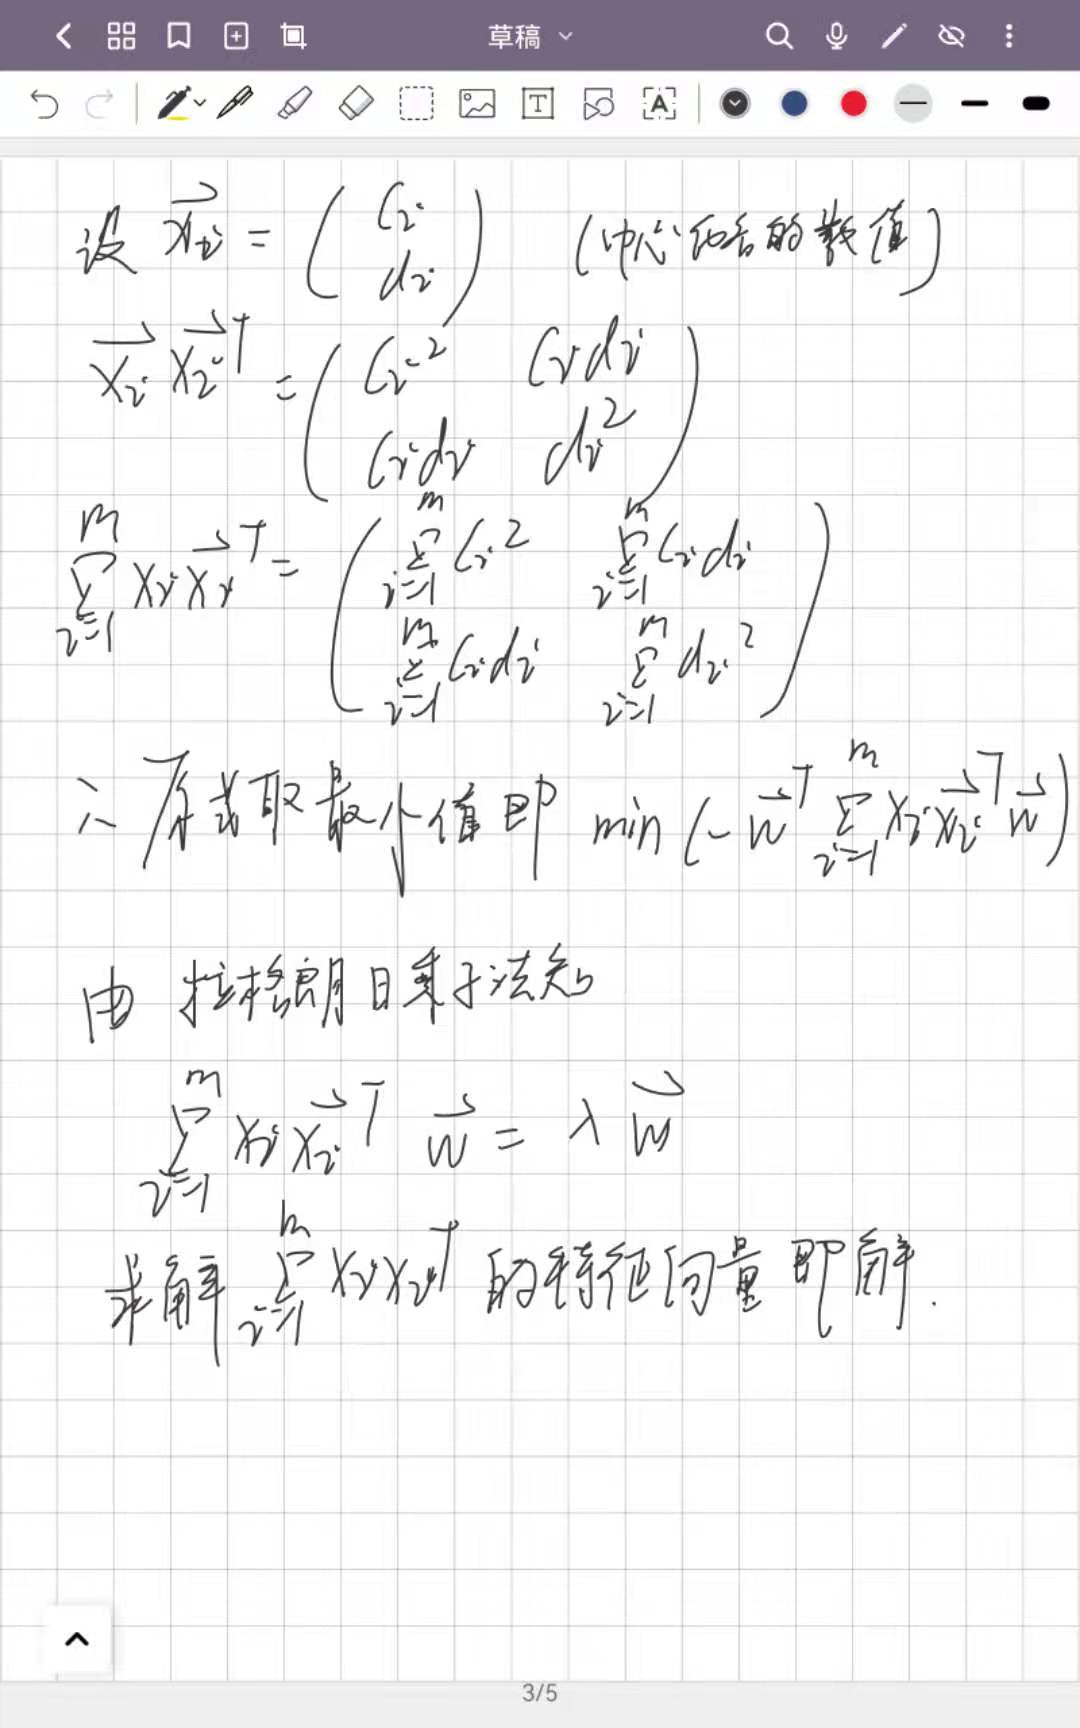 草稿
设 $\vec{x_i} = \begin{pmatrix} c_i \\ d_i \end{pmatrix}$ (中心化后的数值)
$\vec{x_i} \vec{x_i}^T = \begin{pmatrix} c_i^2 & c_i d_i \\ c_i d_i & d_i^2 \end{pmatrix}$
$\sum_{i=1}^{m} x_i \vec{x_i}^T = \begin{pmatrix} \sum_{i=1}^{m} c_i^2 & \sum_{i=1}^{m} c_i d_i \\ \sum_{i=1}^{m} c_i d_i & \sum_{i=1}^{m} d_i^2 \end{pmatrix}$
∴ 原式取最小值即 $\min (- \vec{w}^T \sum_{i=1}^{m} x_i \vec{x_i}^T \vec{w})$
由 拉格朗日乘子法知
$\sum_{i=1}^{m} x_i \vec{x_i}^T \vec{w} = \lambda \vec{w}$
求解 $\sum_{i=1}^{m} x_i x_i^T$ 的特征向量即解.
3/5